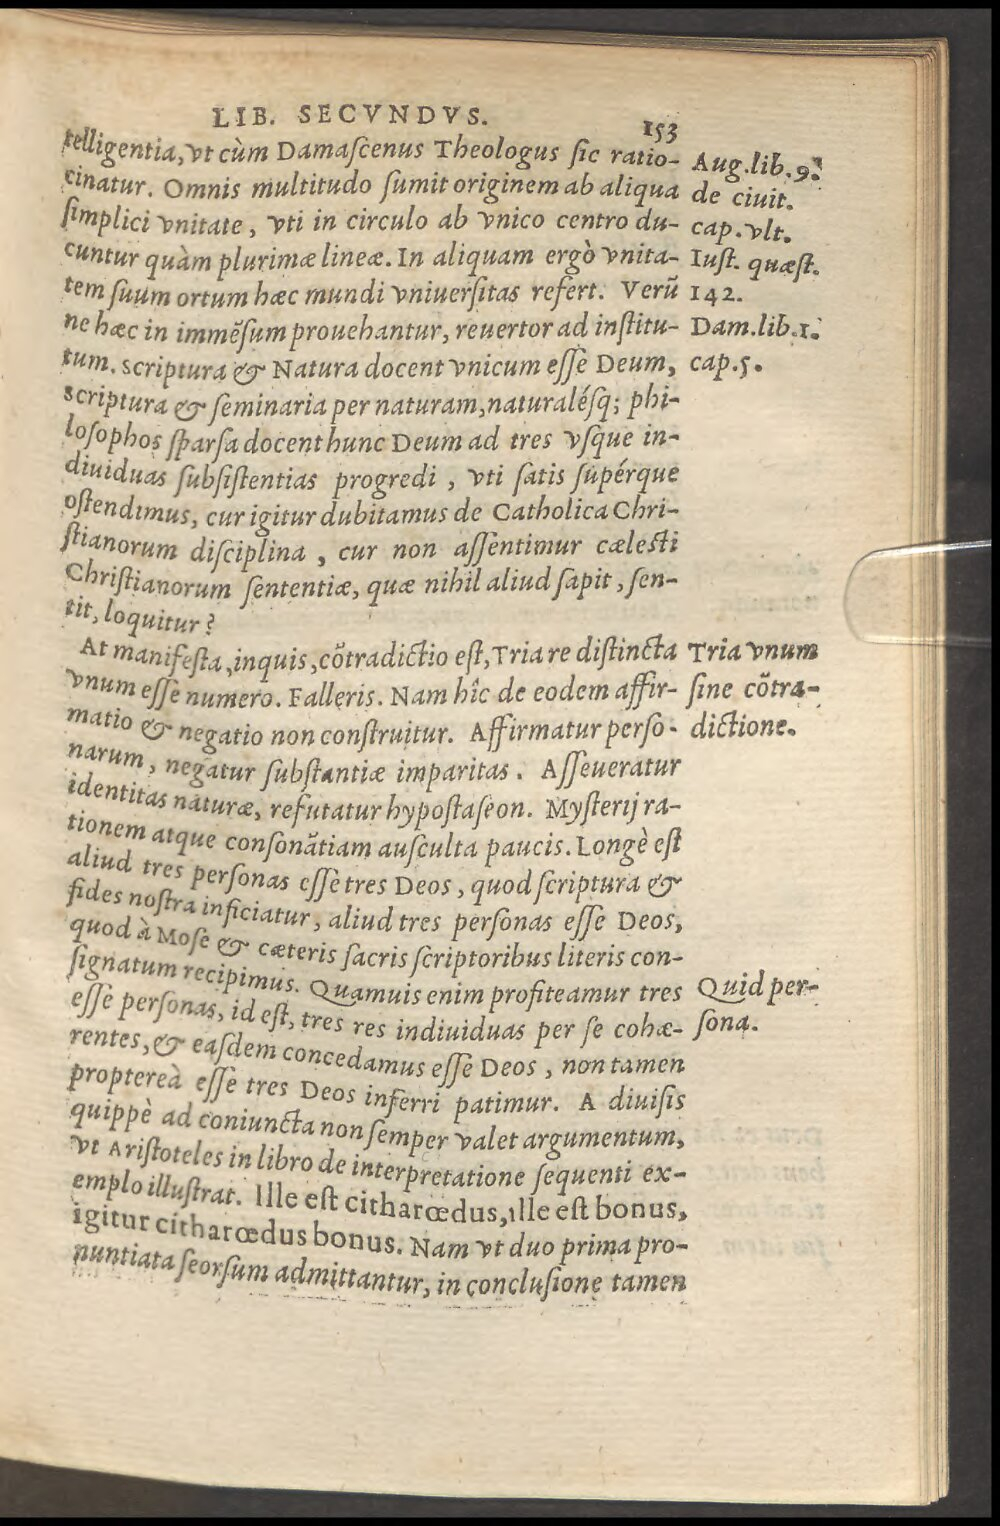 LIB. SECVNDVS.
153
telligentia, vt cùm Damaſcenus Theologus ſic ratio-
cinatur. Omnis multitudo ſumit originem ab aliqua
ſimplici vnitate, vti in circulo ab vnico centro du-
cuntur quàm plurimæ lineæ. In aliquam ergò vnita-
tem ſuum ortum hæc mundi vniuerſitas refert. Verũ
ne hæc in immẽſum prouehantur, reuertor ad inſtitu-
tum. Scriptura & Natura docent vnicum eſſe Deum,
Scriptura & ſeminaria per naturam, naturaléſq; phi-
loſophos ſparſa docent hunc Deum ad tres vſque in-
diuiduas ſubſiſtentias progredi, vti ſatis ſupérque
oſtendimus, cur igitur dubitamus de Catholica Chri-
ſtianorum diſciplina, cur non aſſentimur cæleſti
Chriſtianorum ſententiæ, quæ nihil aliud ſapit, ſen-
tit, loquitur?
At manifeſta, inquis, cõtradictio eſt, Tria re diſtincta
vnum eſſe numero. Falleris. Nam hîc de eodem affir-
matio & negatio non conſtruitur. Affirmatur perſo-
narum, negatur ſubſtantiæ imparitas. Aſſeueratur
identitas naturæ, refutatur hypoſtaſeon. Myſterij ra-
tionem atque conſonãtiam auſculta paucis. Longè eſt
aliud tres perſonas eſſe tres Deos, quod ſcriptura &
fides noſtra inficiatur, aliud tres perſonas eſſe Deos,
quod à Moſe & cæteris ſacris ſcriptoribus literis con-
ſignatum recipimus. Quamuis enim profiteamur tres
eſſe perſonas, id eſt, tres res indiuiduas per ſe cohæ-
rentes, & eaſdem concedamus eſſe Deos, non tamen
propterea eſſe tres Deos inferri patimur. A diuiſis
quippè ad coniuncta non ſemper valet argumentum,
vt Ariſtoteles in libro de interpretatione ſequenti ex-
emplo illuſtrat. Ille eſt citharœdus, ille eſt bonus,
igitur citharœdus bonus. Nam vt duo prima pro-
nuntiata ſeorſum admittantur, in concluſione tamen
Aug. lib. 9.
de ciuit.
cap. vlt.
Iuſt. quæſt.
142.
Dam. lib. 1.
cap. 5.
Tria vnum
ſine cõtra-
dictione.
Quid per-
ſona.